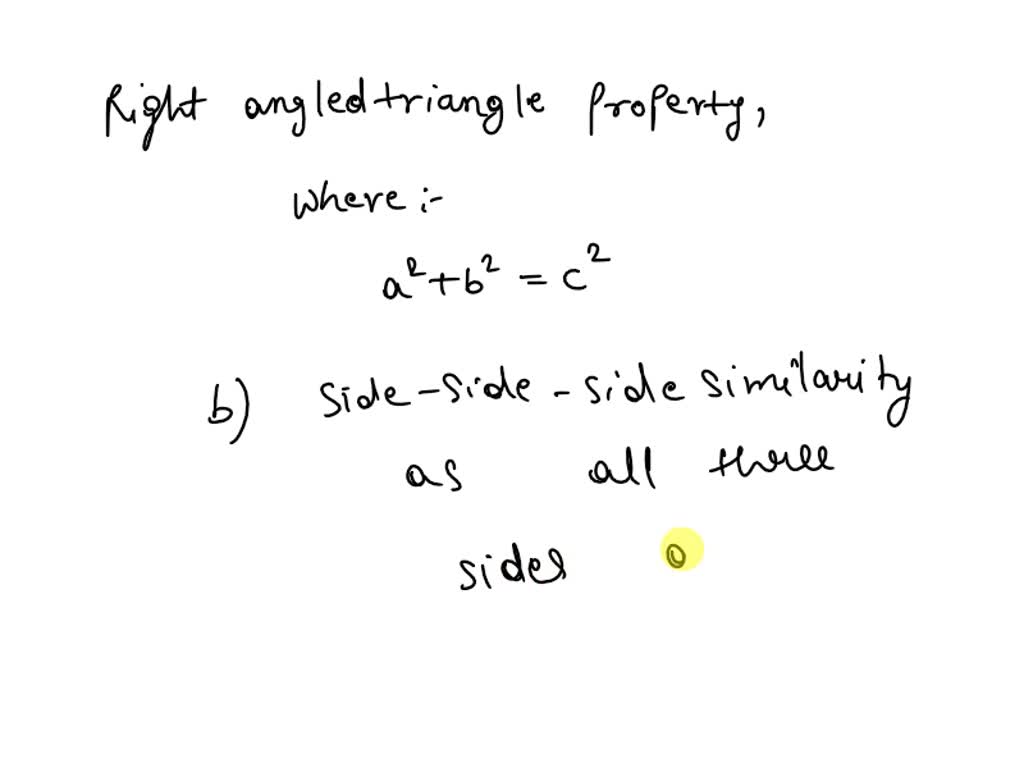 Right angled triangle Property,
where :-
a² + b² = c²
b) Side - Side - side similarity
as all three
sides o